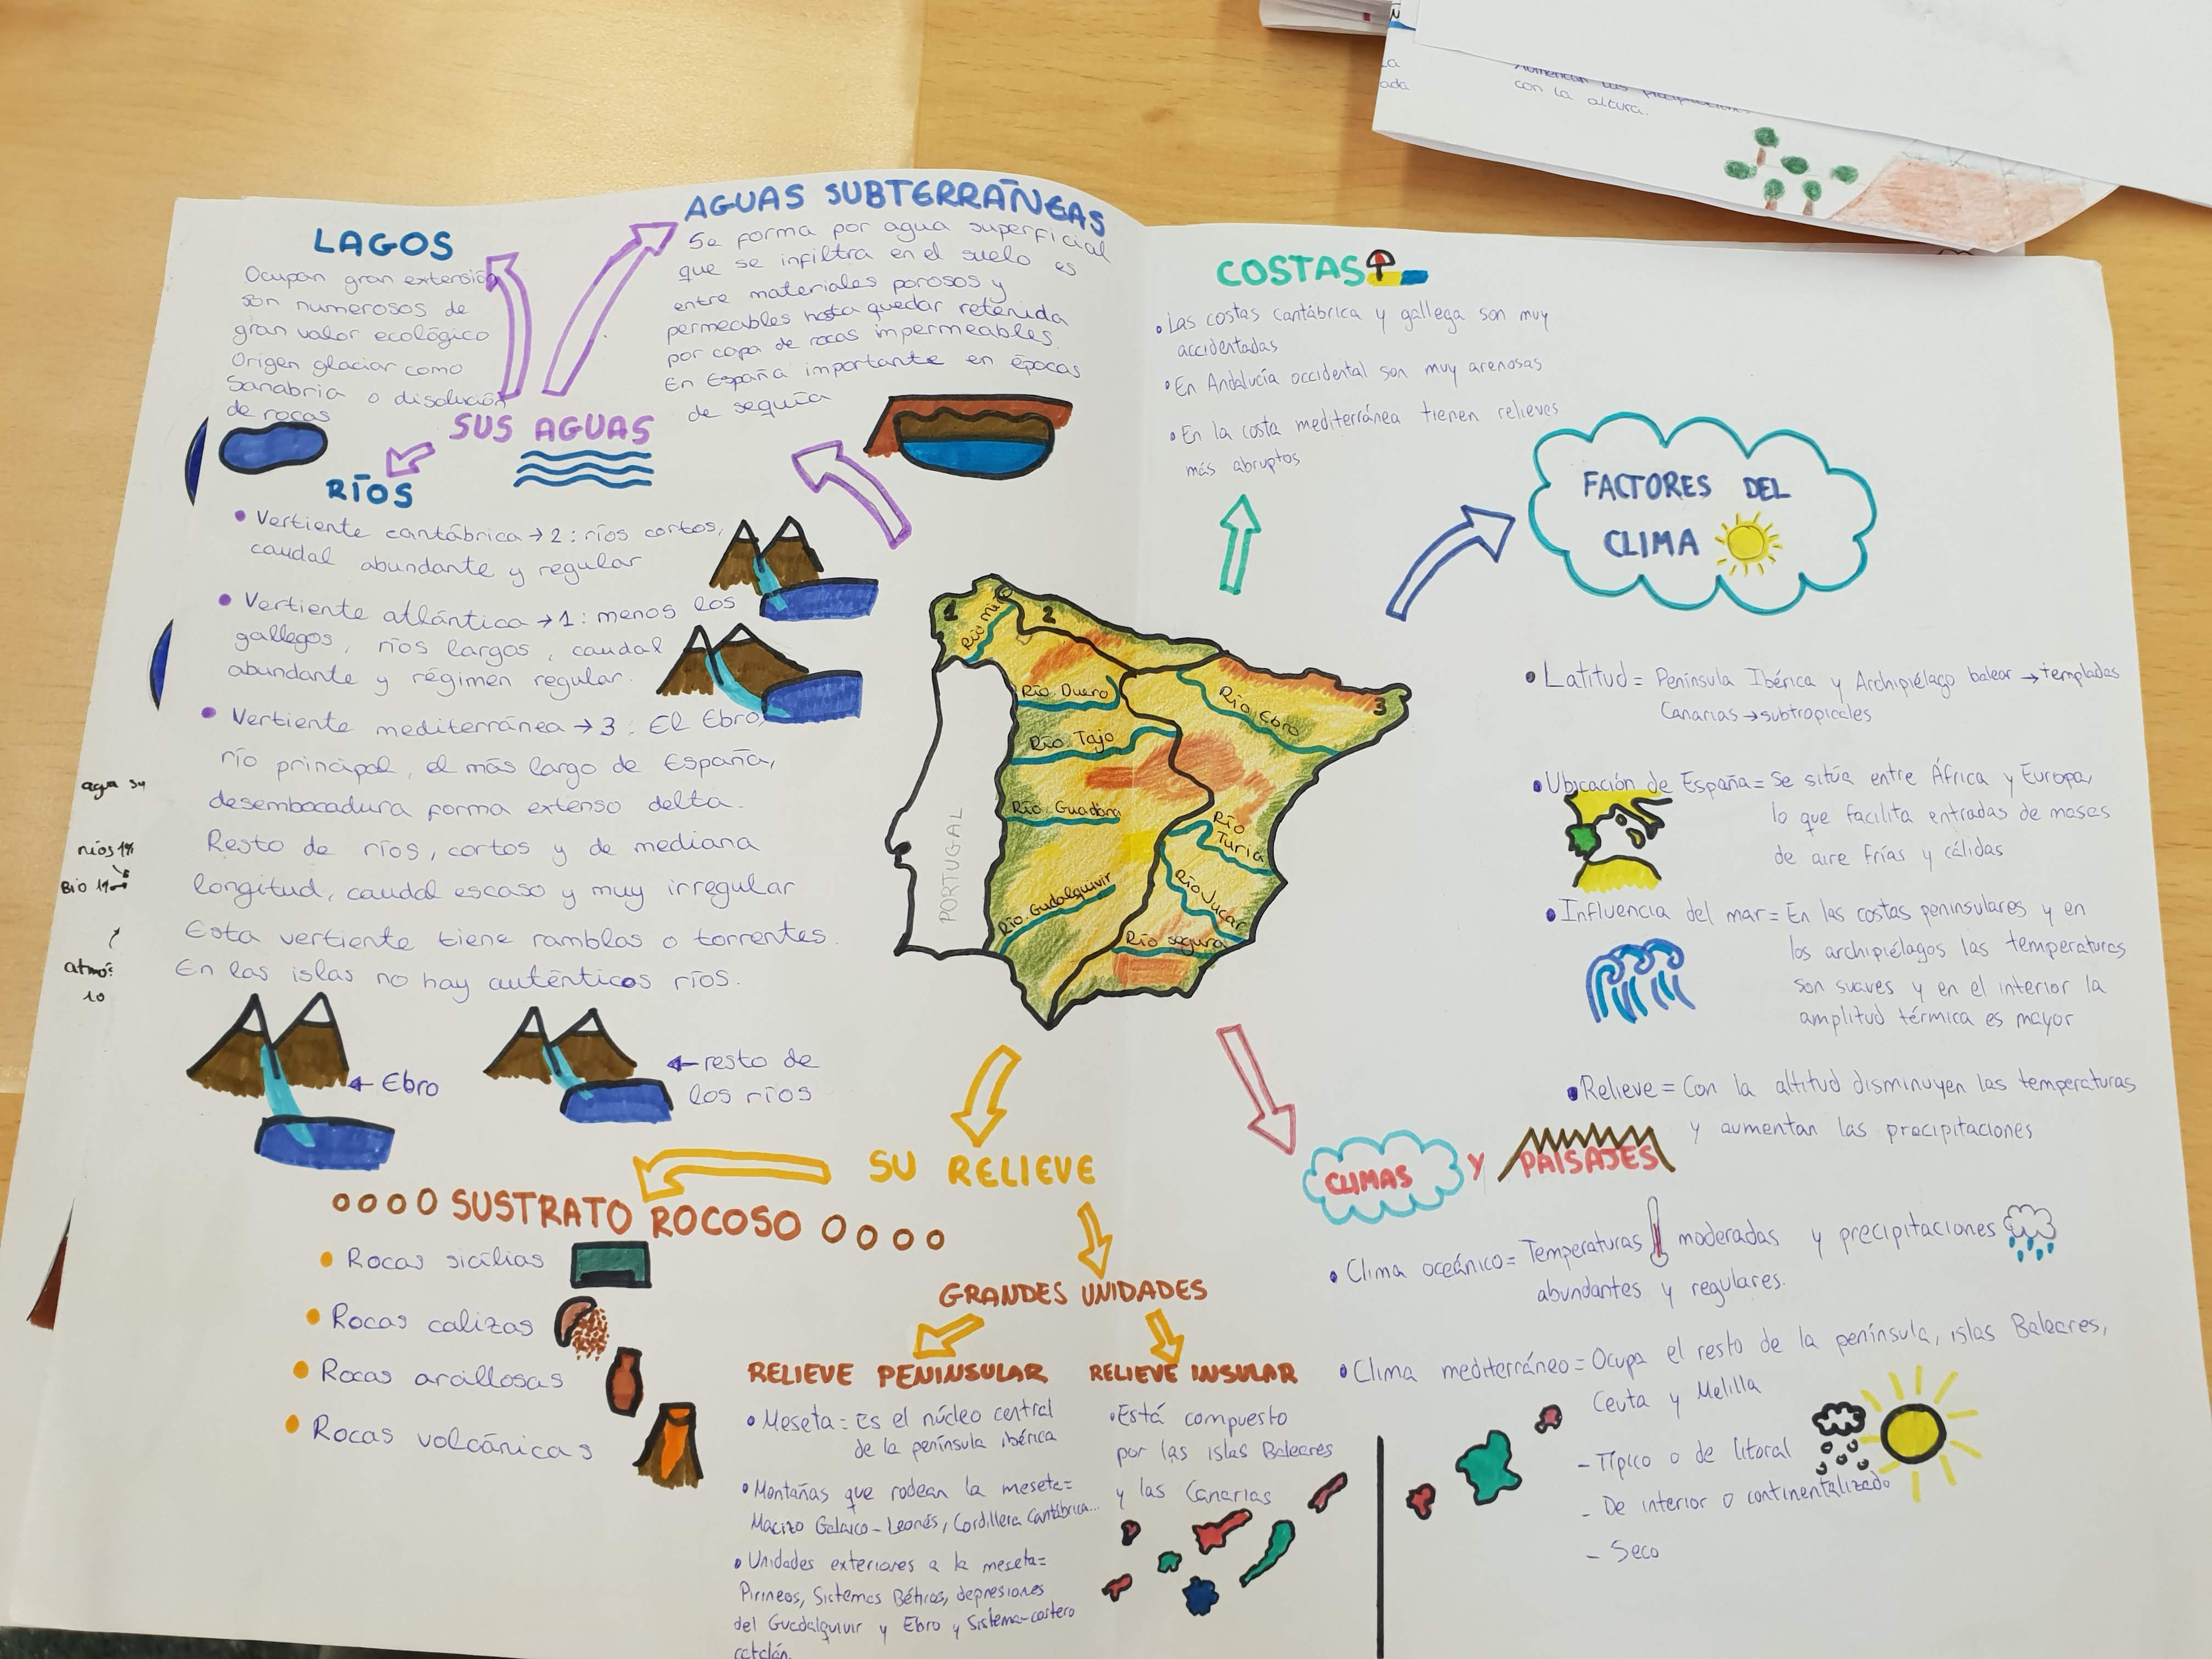 LAGOS
Ocupan gran extensión
son numerosos de
gran valor ecológico
Origen glaciar como
Sanabria o disolución
de rocas
AGUAS SUBTERRÁNEAS
Se forma por agua superficial
que se infiltra en el suelo es
entre materiales porosos y
permeables hasta quedar retenida
por capa de rocas impermeables.
En España importante en épocas
de sequía
SUS AGUAS
RÍOS
• Vertiente cantábrica → 2: ríos cortos,
caudal abundante y regular
• Vertiente atlántica → 1: menos los
gallegos, ríos largos, caudal
abundante y régimen regular.
• Vertiente mediterránea → 3: El Ebro,
río principal, el más largo de España,
desembocadura forma extenso delta.
Resto de ríos, cortos y de mediana
longitud, caudal escaso y muy irregular
Esta vertiente tiene ramblas o torrentes.
En las islas no hay auténticos ríos.
← Ebro
← resto de
los ríos
agua su
ríos 1%
Bio 1%
atmós
10
COSTAS
• Las costas cantábrica y gallega son muy
accidentadas
• En Andalucía occidental son muy arenosas
• En la costa mediterránea tienen relieves
más abruptos
FACTORES DEL
CLIMA
• Latitud = Península Ibérica y Archipiélago balear → templadas
Canarias → subtropicales
• Ubicación de España = Se sitúa entre África y Europa,
lo que facilita entradas de masas
de aire frías y cálidas
• Influencia del mar = En las costas peninsulares y en
los archipiélagos las temperaturas
son suaves y en el interior la
amplitud térmica es mayor
• Relieve = Con la altitud disminuyen las temperaturas
y aumentan las precipitaciones
1
2
3
Río Miño
Río Duero
Río Ebro
Río Tajo
Río Guadiana
Río
Turia
Río Jucar
Río Gudalquivir
Río segura
PORTUGAL
SU RELIEVE
SUSTRATO ROCOSO
• Rocas sicílias
• Rocas calizas
• Rocas arcillosas
• Rocas volcánicas
GRANDES UNIDADES
RELIEVE PENINSULAR
• Meseta = Es el núcleo central
de la península ibérica
• Montañas que rodean la meseta =
Macizo Galaico-Leonés, Cordillera Cantábrica...
• Unidades exteriores a la meseta =
Pirineos, Sistemas Béticos, depresiones
del Guadalquivir y Ebro y Sistema-costero
catalán.
RELIEVE INSULAR
• Está compuesto
por las islas Baleares
y las Canarias
CLIMAS Y PAISAJES
• Clima oceánico = Temperaturas moderadas y precipitaciones
abundantes y regulares.
• Clima mediterráneo = Ocupa el resto de la península, islas Baleares,
Ceuta y Melilla
- Típico o de litoral
- De interior o continentalizado
- Seco
con la altura.